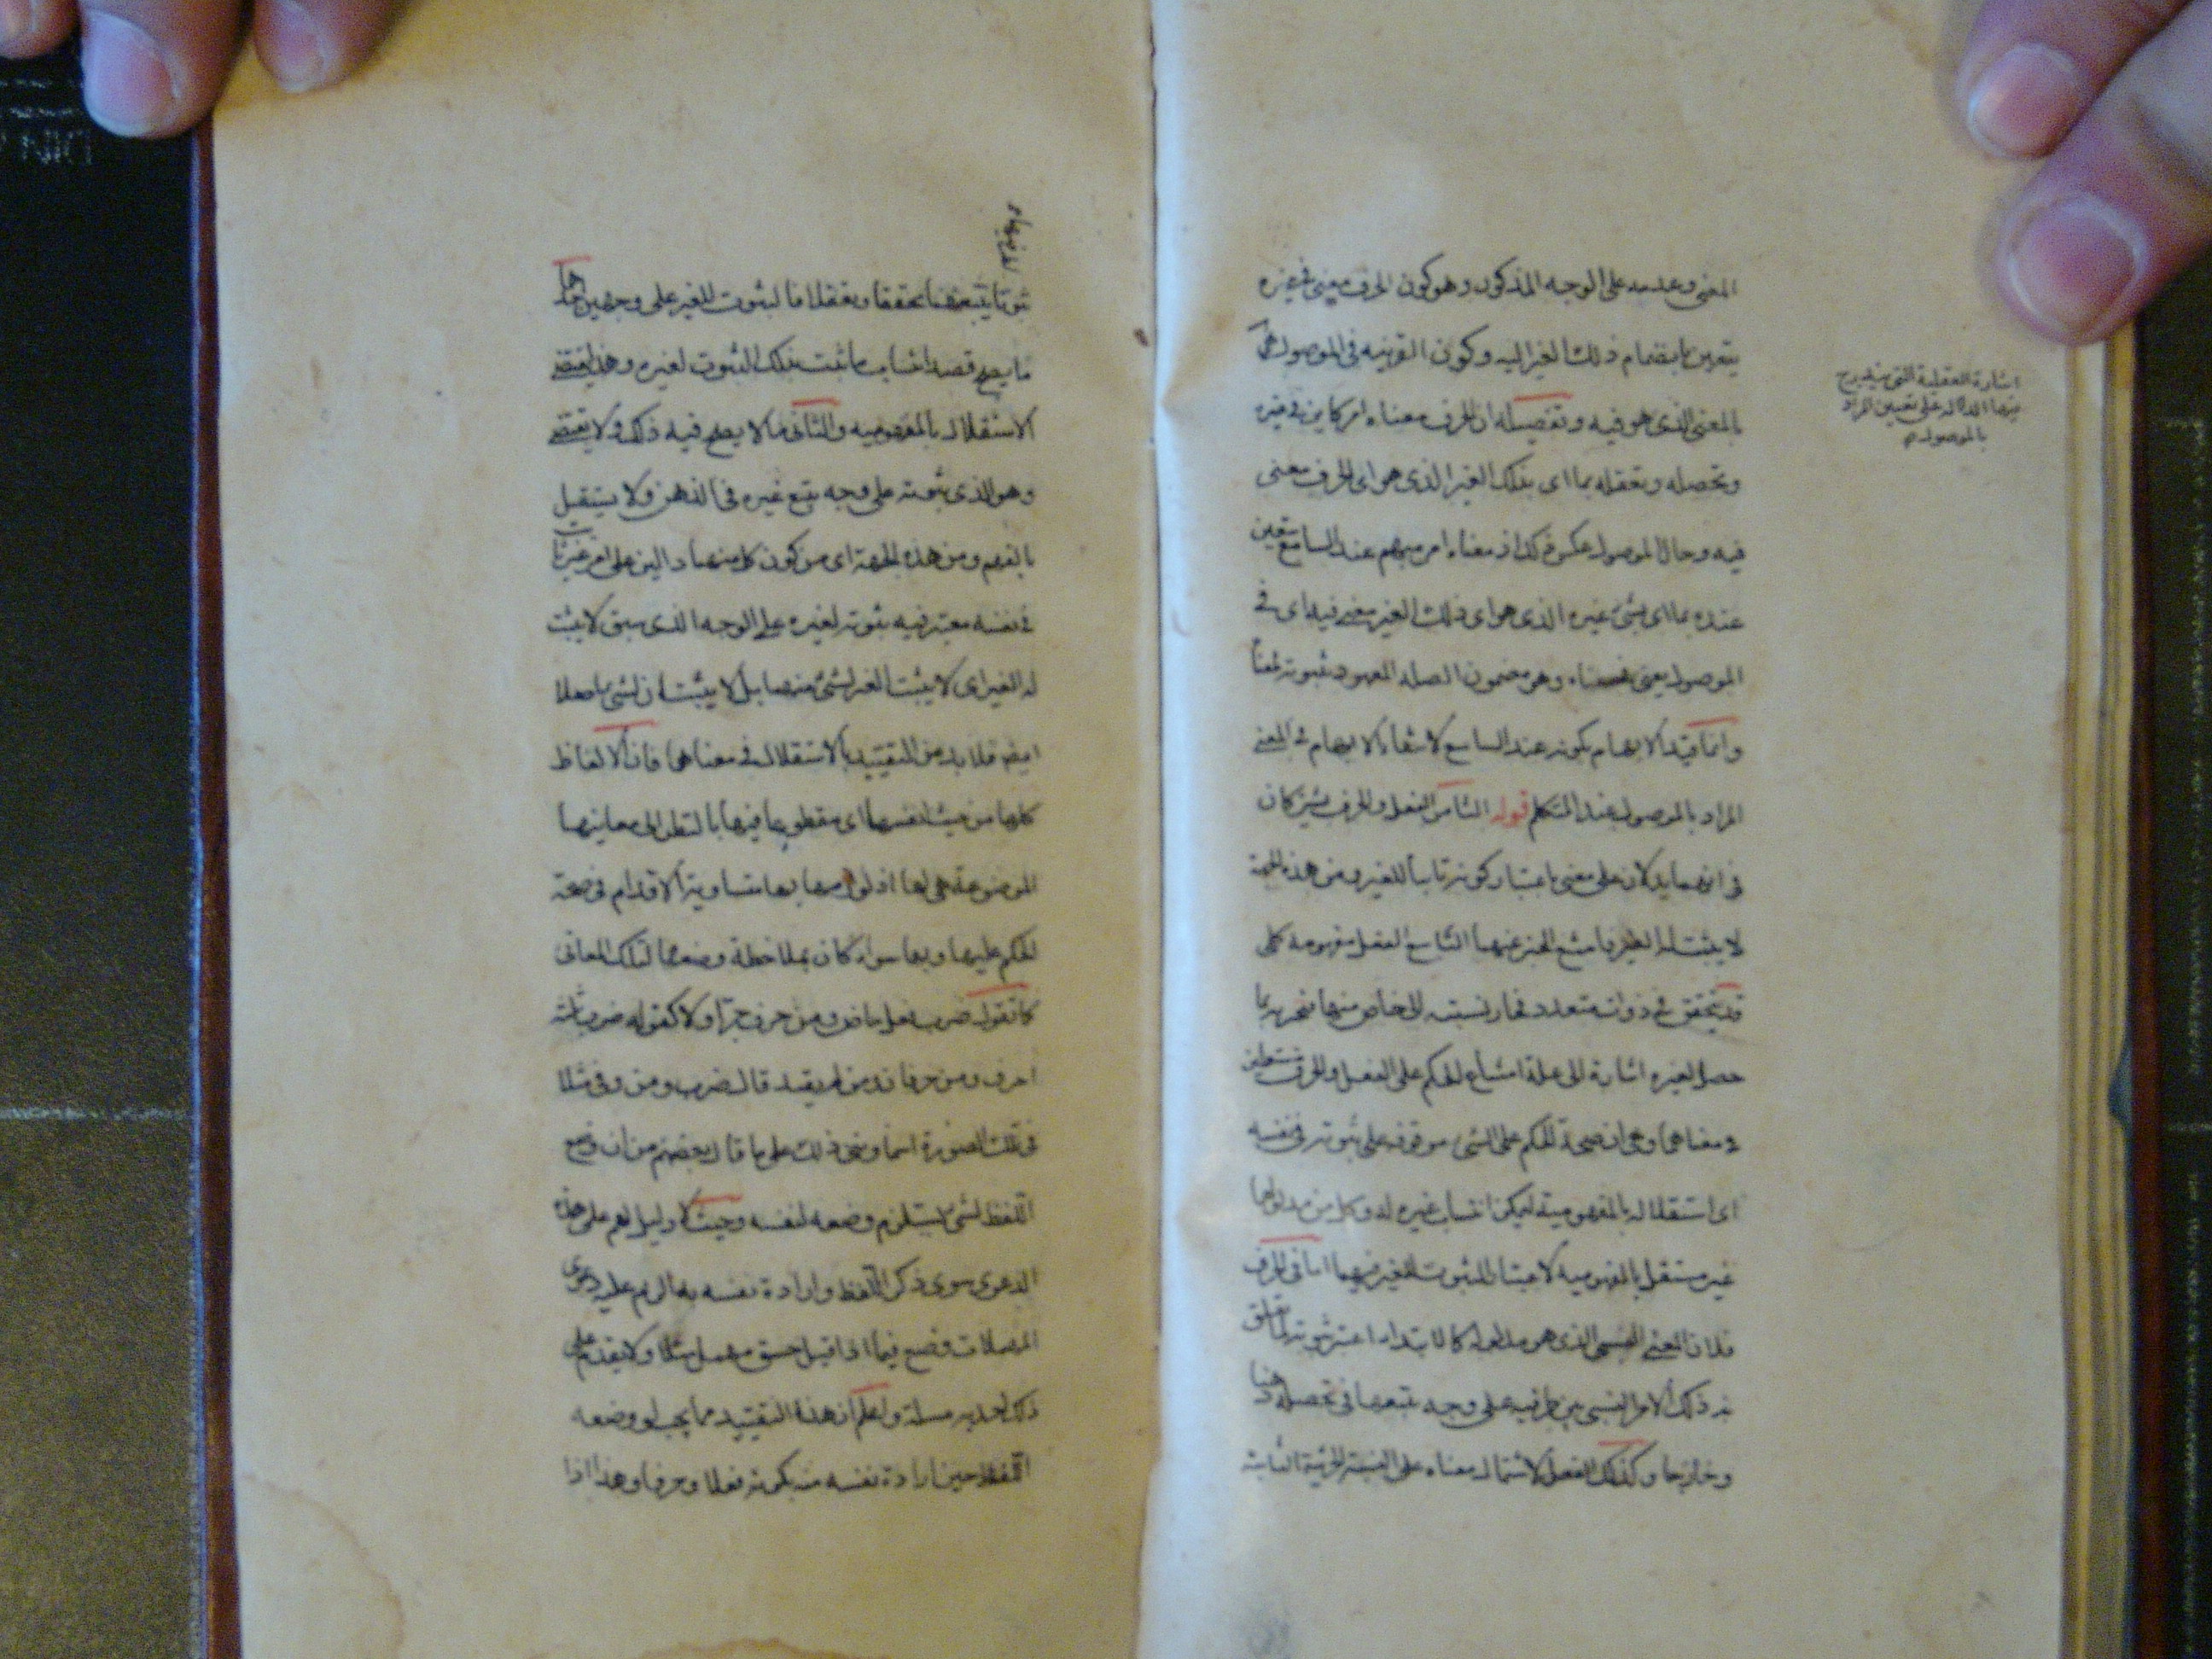 المعنى وعدمه على الوجه المذكور وهو كون الحرف معنى في غيره
يتعين بانضمام ذلك الغير اليه وكون القرينه في الموصول
بالمعنى الذى هو فيه وتفصيله ان الحرف معناه امر كاين في غيره
وتحصله وتعقله بما اى بذلك الغير الذى هو اى الحرف معنى
فيه وحال الموصول عكس ذلك اذ معناه امر مبهم عند السامع يتعين
عنده بما اى بشئ غيره الذى هو اى ذلك الغير معنى فيه اى في
الموصول يعنى في معناه وهو مضمون الصله المعهود ثبوته
وانما قيد الابهام بكونه عند السامع لانتفاء الابهام في المعنى
المراد بالموصول عند المتكلم قوله الثامن الفعل والحرف يشتركان
في انهما يدلان على معنى باعتبار كونه ثابتا للغير ومن هذه الجهة
لا يثبت له الغير فامتنع الخبر عنهما التاسع الفعل مفهومه كلى
قد يتحقق في ذوات متعدده فجاز نسبته الى خاص منها فيخبر به
حصل لغيره اشارة الى علة امتناع الحكم على الفعل والحرف
معناهما وهى ان صحة الحكم على الشئ موقوف على ثبوته في نفسه
اى استقلاله بالمفهومية ليمكن انتساب غيره له وكل من مدلولهما
غير مستقل بالمفهوميه لاعتبار الثبوت للغير فيهما اما في الحرف
فلان المعنى النسبى الذى هو مدلوله كالابتداء اعتبر ثبوته
ذلك الامر النسبى بين طرفيه على وجه يتبعهما في تحصله ذهنا
وخارجا وكذلك الفعل لاشتمال معناه على النسبة الجزئية الثابتة
اشارة العقلية التى
الداله على تعيين المراد
بالموصول
ثبوتا يتبعهما تحققا وتعقلا فالثبوت للغير على وجهين
ما يصح قصد انتساب ما ثبت بذلك الثبوت لغيره وهذا يقتضى
الاستقلال بالمفهوميه والثانى ما لا يصح فيه ذلك ولا يقتضى
وهو الذى ثبوته على وجه يتبع غيره في الذهن ولا يستقل
بالفهم ومن هذه الجهة اى من كون كل منهما دالين على امر
في نفسه معتبر فيه ثبوته لغيره على الوجه الذى سبق لا يثبت
له الغير اى لا يثبت الغير لشئ منهما بل لا يثبتان لشئ اصلا
ايضا فلا بد من التقييد بالاستقلال في معناهما فان الالفاظ
كلها من حيث انفسها اى مقطوعا فيها بالنظر الى معانيها
الموضوعة هى لها متساوية الاقدام في صحة
الحكم عليها وبها سواء كان بملاحظة وضعها لتلك المعانى
كما تقول ضرب فعل ماض ومن حرف جر او لا كقوله ضرب ثلثه
احرف ومن حرفان قال ضرب ومن وفى مثلا
في تلك الصورة اسما ونحو ذلك على ما قال بعضهم من ان وضع
اللفظ لشئ يستلزم وضعه لنفسه وحيث لا دليل لهم على هذه
الدعوى سوى ذكر اللفظ وارادة نفسه به الزم عليه دعوى
المهملات وضع فيما اذا قيل جسق مهمل مثلا ولا يقدم على
ذلك احد واعلم ان هذا التقييد مما يجب لو وضعه
اللفظ حين ارادة نفسه فعلا وحرفا وهذا اذا